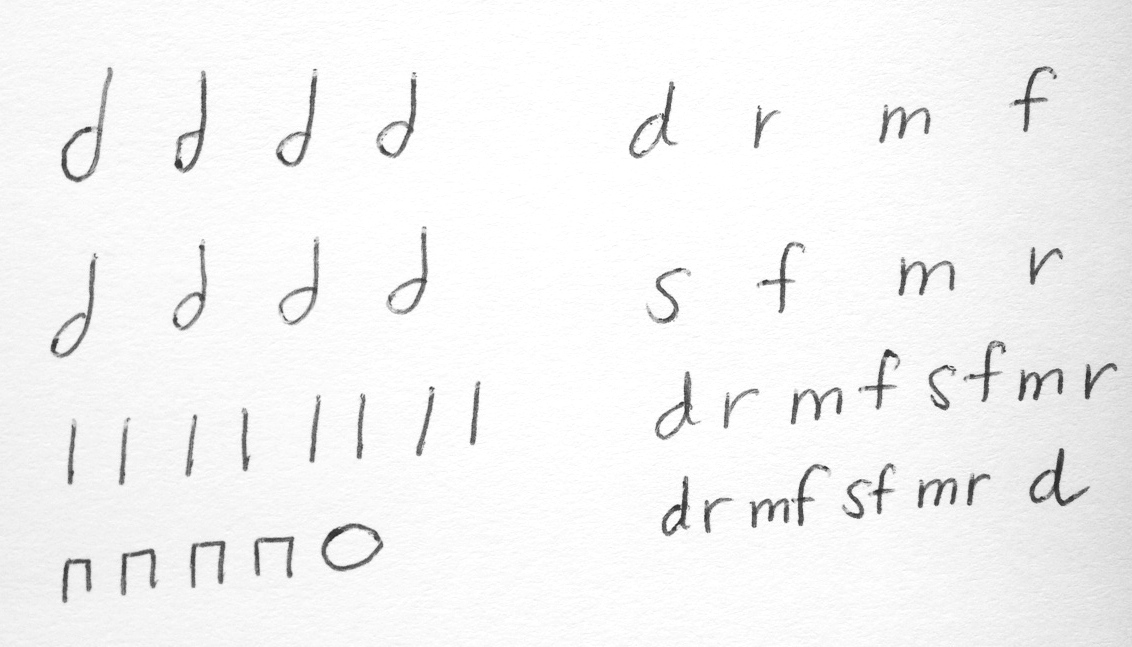 d r m f
s f m r
d r m f s f m r
dr mf sf mr d